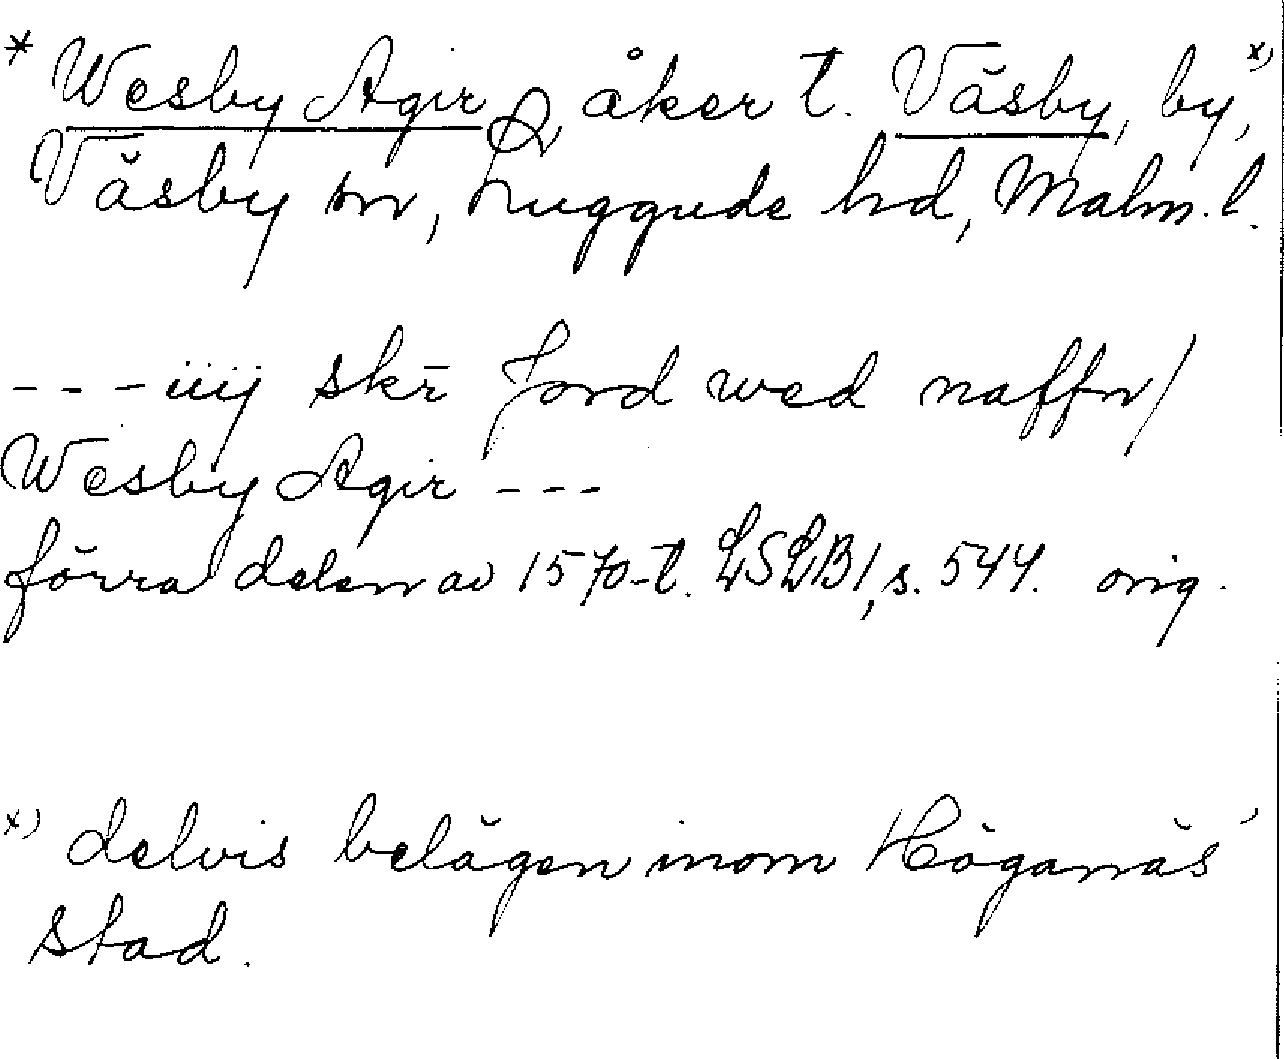 * Wesby Agir, åker t. Väsby, by, x)
Väsby sn, Luggude hd, Malm. l.
---iiij skr̄ Jord wed naffn/
Wesby Agir ---
förra delen av 1570-t. LSLB1, s. 544. orig.
x) delvis belägen inom Höganäs'
stad.